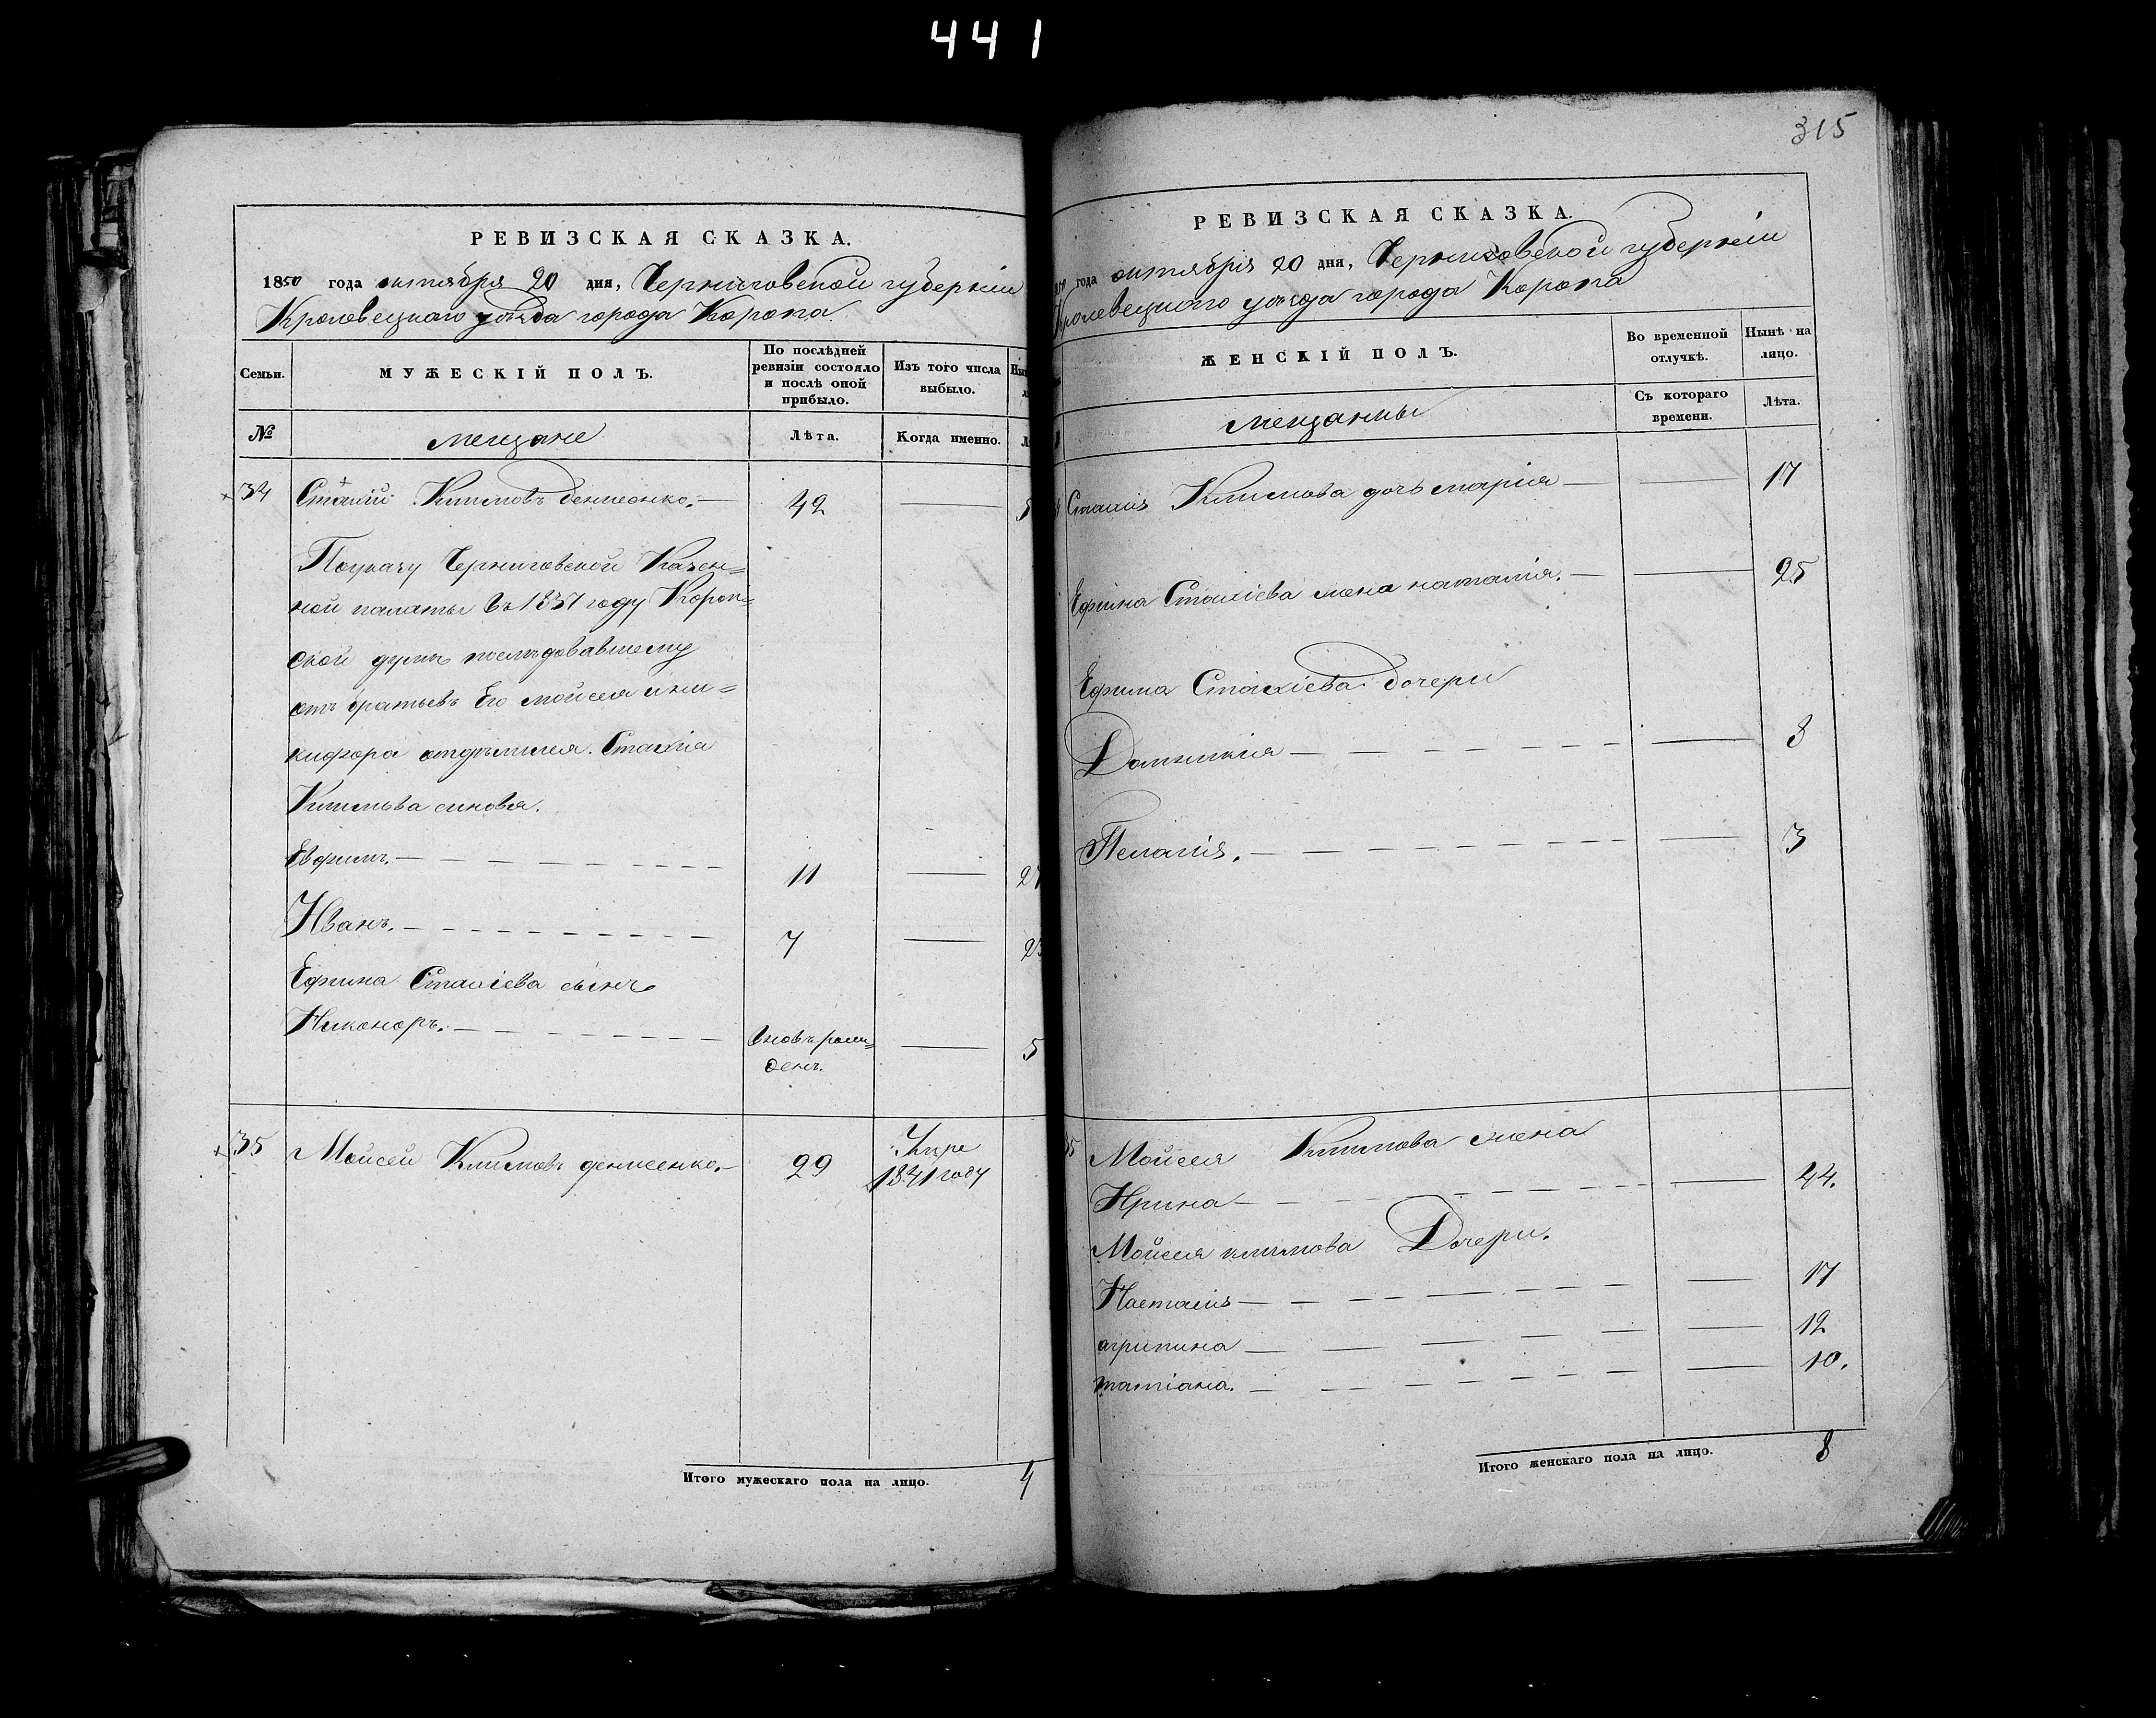 441
РЕВИЗСКАЯ СКАЗКА.
1850 года октября 20 дня, Черниговской губерніи
Кролевецкаго уѣзда города Коропа
Семьи.
МУЖЕСКІЙ ПОЛЪ.
По послѣдней
ревизіи состояло
и послѣ оной
прибыло.
Изъ того числа
выбыло.
№
мещане
Лѣта.
Когда именно.
34 Стахій Климовъ денисенко. — 42 —
Поуказу Черниговской Казен=
ной палаты въ 1837 году Короп=
ской думѣ последовавшему
отъ братьевъ Его мойсея ини=
кифора отдѣлился. Стахіа
Климова синовя.
Евфимъ. — 11 —
Иванъ. — 7 —
Ефима Стахіева сынъ
Никоноръ. — вновь рож=
денъ. — 5
35 Мойсей Климовъ денисенко. — 29
Умре
1841 году
Итого мужескаго пола на лицо. 4
315
РЕВИЗСКАЯ СКАЗКА.
года октября 20 дня, Черниговской губерніи
Кролевецкого уѣзда города Коропа
ЖЕНСКІЙ ПОЛЪ.
Во временной
отлучкѣ.
Нынѣ на
лицо.
мещанкы
Съ котораго
времени.
Лѣта.
Стахія Климова дочь марія — 17
Ефима Стахіева жена наталія. — 25
Ефима Стахіева дочери
Домникія — 8
Пелагія. — 3
35 Мойсея Климова жена
Ирина — 44.
Мойсея климова Дочери.
Настасія — 17
агрипина — 12
татіана. — 10.
Итого женскаго пола на лицо. 8